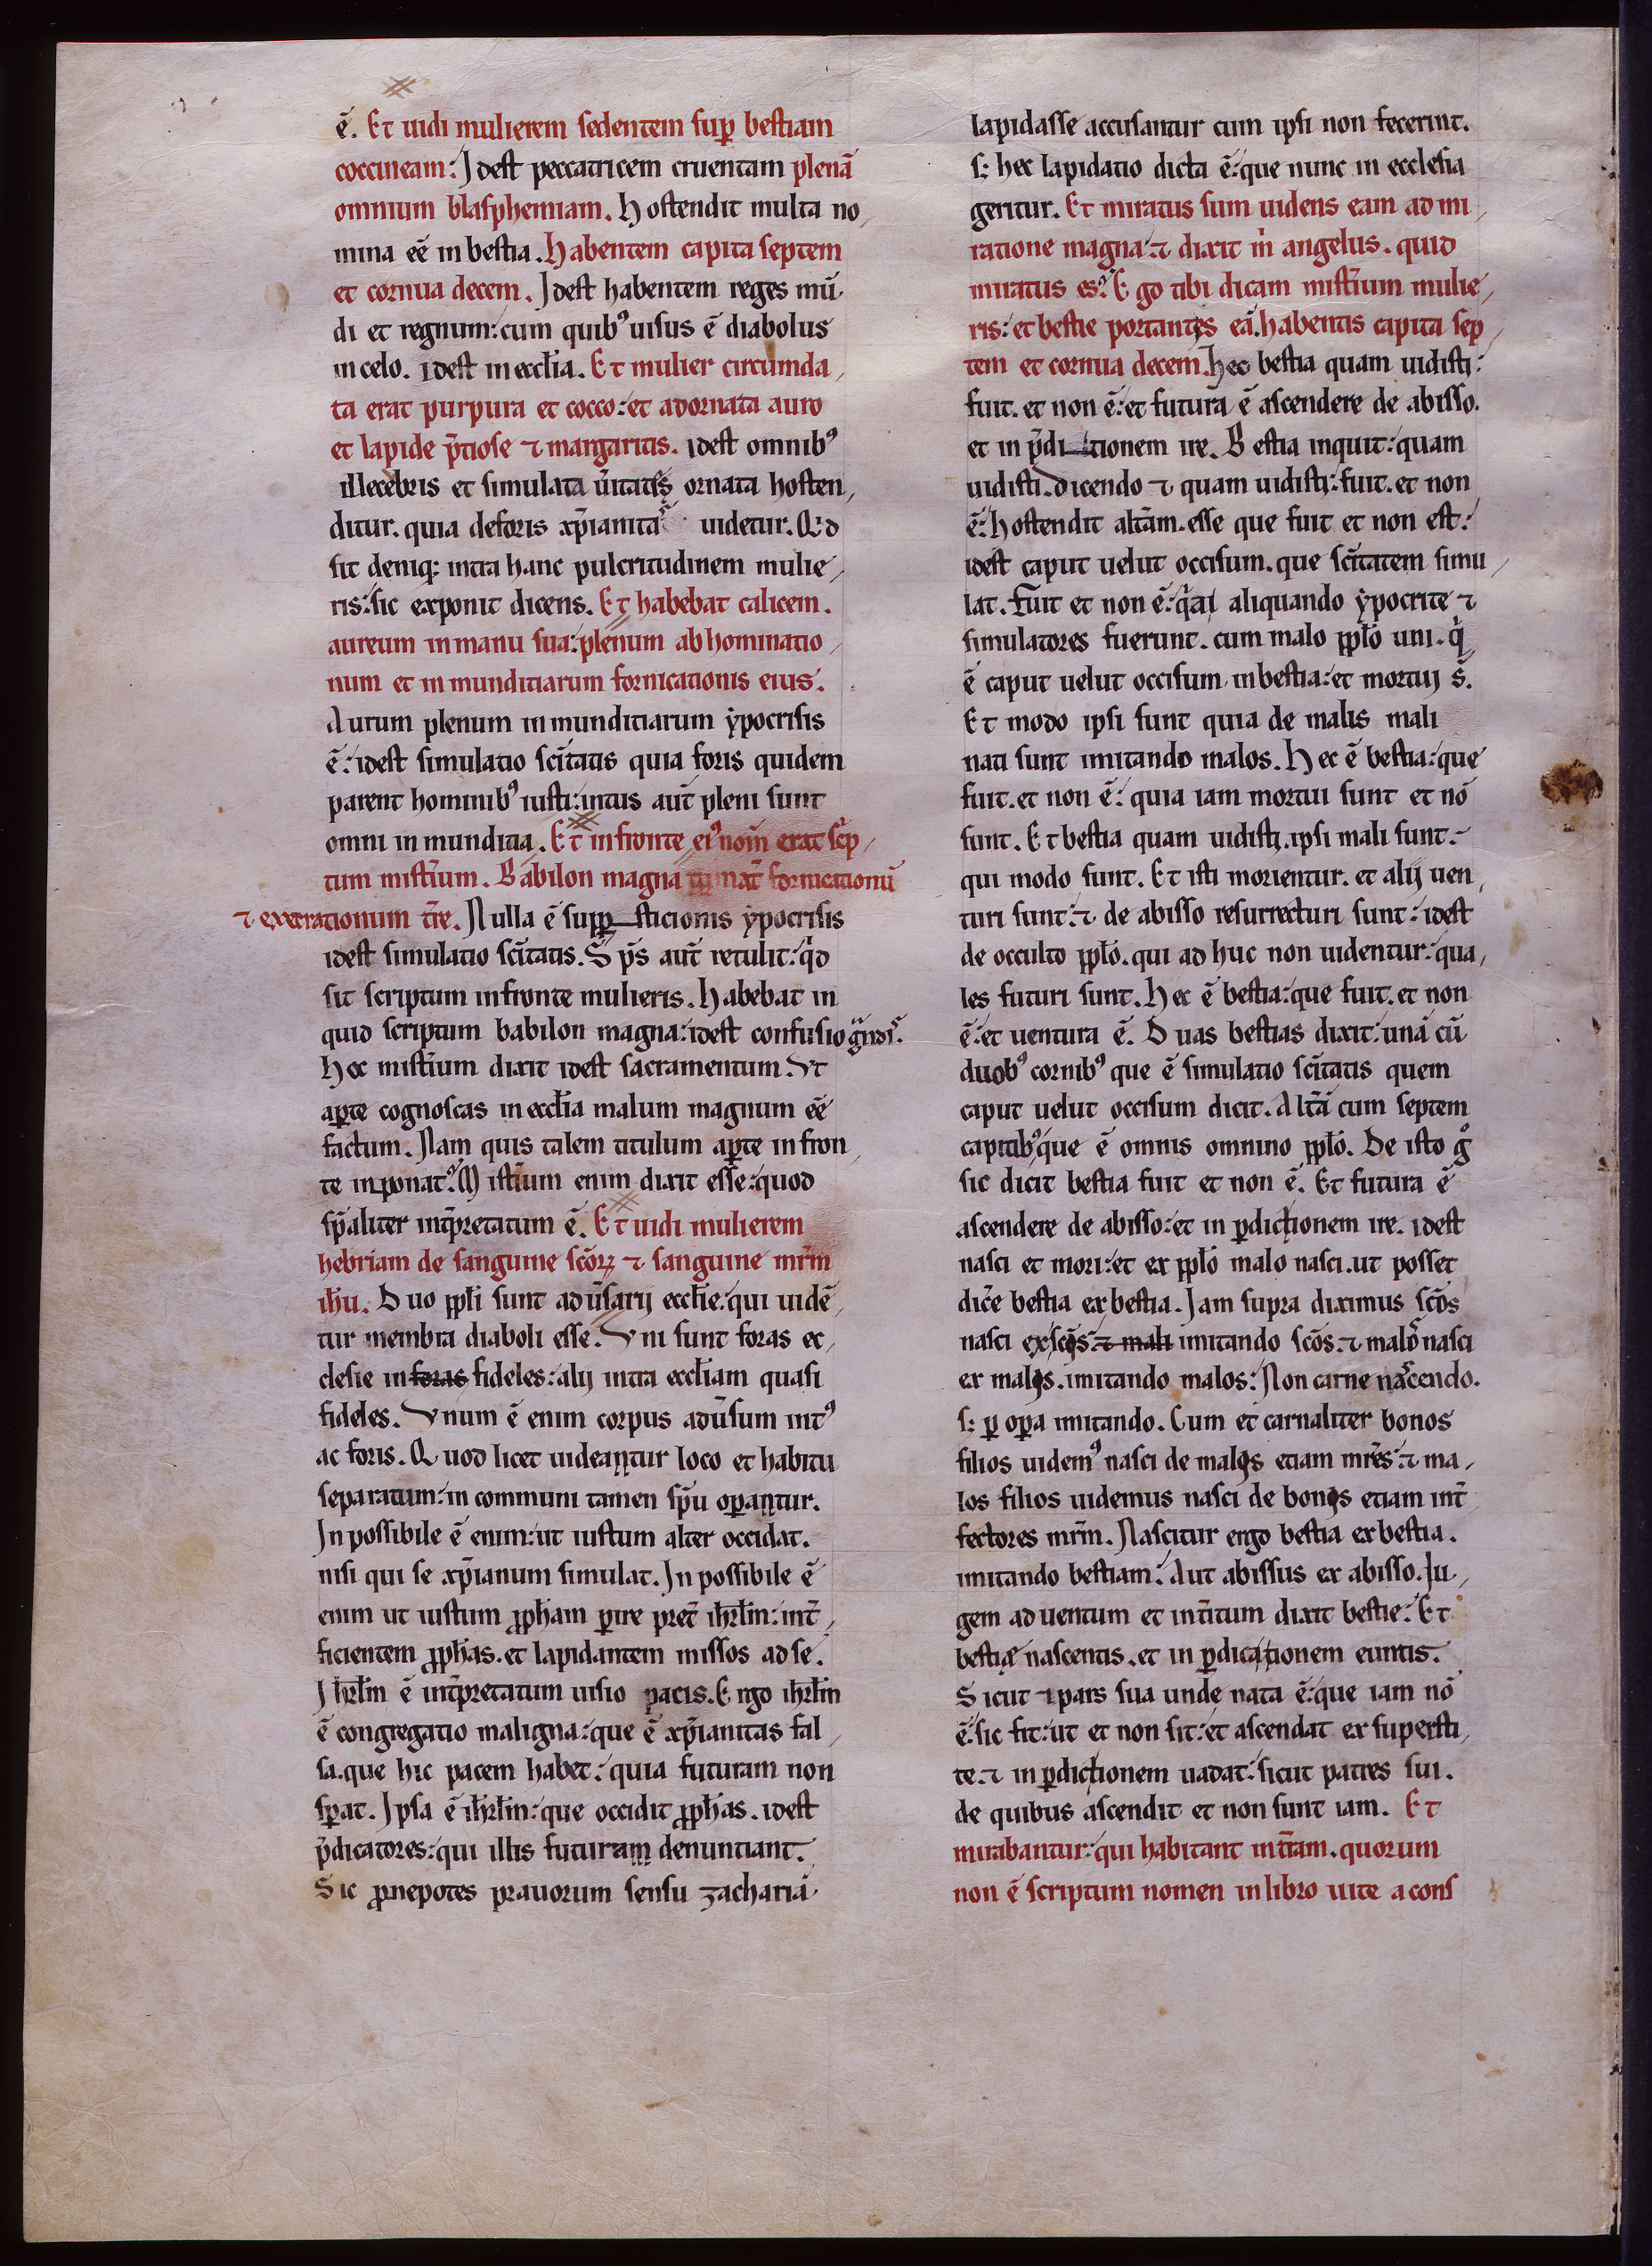 ē. Et uidi mulierem sedentem sup̱ bestiam
coccineam: Idest peccatricem cruentam plenā
omnium blasphemiam. Hostendit multa no
mina eē in bestia. Habentem capita septem
et cornua decem. Idest habentem reges mū
di et regnum: cum quib⁹ uisus ē diabolus
in celo. idest in eccl̄ia. Et mulier circumda
ta erat purpura et cocco: et adornata auro
et lapide p̄tiose ⁊ margaritis. idest omnib⁹
illecebris et simulata ūitatis ornata hosten
ditur. quia deforis xp̄ianitas uidetur. Qd
sit deniq; intra hanc pulcritudinem mulie
ris: sic exponit dicens. Et habebat calicem.
aureum in manu sua: plenum abhominatio
num et inmunditiarum fornicationis eius.
Aurum plenum inmunditiarum ẏpocrisis
ē: idest simulatio sc̄itatis quia foris quidem
parent hominib⁹ iusti: intus aut̄ pleni sunt
omni inmunditia. Et in fronte ei⁹ nom̄ erat sc̄p
tum mist̄ium. Babilon magna fornicationū
⁊ execrationum t̄re. Nulla ē sup̱sticionis ẏpocrisis
idest simulatio sc̄itatis. Sp̄s aut̄ retulit: qd
sit scriptum in fronte mulieris. Habebat in
quid scriptum babilon magna: idest confusio gͣndis.
Hoc mist̄ium dixit idest sacramentum. Vt
ap̱te cognoscas in eccl̄ia malum magnum eē
factum. Nam quis talem titulum ap̱te in fron
te inponat? Mist̄ium enim dixit esse: quod
sp̄aliter int̄p̱retatum ē. Et uidi mulierem
hebriam de sanguine sc̄oꝝ ⁊ sanguine mr̄m
ih̄u. Duo pp̄li sunt adūsarij eccl̄ie: qui uidē
tur membra diaboli esse. Vni sunt foras ec
clesie in foras fideles: alij intra eccl̄iam quasi
fideles. Vnum ē enim corpus adūsum int⁹
ac foris. Quod licet uideantur loco et habitu
separatum: in communi tamen sp̄u op̱antur.
Inpossibile ē enim: ut iustum alter occidat.
nisi qui se xp̄ianum simulat. Inpossibile ē
enim ut iustum p̱ph̄am p̱ire pret̄ ih̄rl̄m: int̄
ficientem p̱ph̄as. et lapidantem missos ad se.
Ih̄rl̄m ē int̄p̱retatum uisio pacis. Ergo ih̄rl̄m
ē congregatio maligna: que ē xp̄ianitas fal
sa. que hic pacem habet: quia futuram non
sp̱at. Ipsa ē ih̄rl̄m: que occidit p̱ph̄as. idest
p̄dicatores: qui illis futuram denuntiant.
Sic p̱nepotes prauorum sensu zachariā
lapidasse accusantur cum ipsi non fecerint.
s; hec lapidatio dicta ē: que nunc in ecclesia
geritur. Et miratus sum uidens eam ad mi
ratione magna: ⁊ dixit m̄ angelus. quid
miratus es? Ego tibi dicam mist̄ium mulie
ris: et bestie portantes eā. habentis capita sep
tem et cornua decem. Hec bestia quam uidisti:
fuit. et non ē: et futura ē ascendere de abisso.
et in p̄ditionem ire. Bestia inquit: quam
uidisti. Dicendo ⁊ quam uidisti: fuit. et non
ē: hostendit alt̄am. esse que fuit et non est:
idest caput uelut occisum. que sc̄itatem simu
lat. Fuit et non ē: aliquando ẏpocrite ⁊
simulatores fuerunt. cum malo pp̄lo uni. q̄
ē caput uelut occisum in bestia: et mortuj s̄.
Et modo ipsi sunt quia de malis mali
nati sunt imitando malos. Hec ē bestia: que
fuit. et non ē: quia iam mortui sunt et nō
sunt. Et bestia quam uidisti. ipsi mali sunt
qui modo sunt. Et isti morientur. et alij uen
turi sunt: ⁊ de abisso resurrecturi sunt: idest
de occulto pp̄lo. qui ad huc non uidentur: qua
les futuri sunt. Hec ē bestia: que fuit. et non
ē: et uentura ē. Duas bestias dixit: unā cū
duob⁹ cornib⁹ que ē simulatio sc̄itatis quem
caput uelut occisum dicit. Alt̄ā cum septem
capitib⁹ que ē omnis omnino pp̄lo. De isto gͦ
sic dicit bestia fuit et non ē. Et futura ē
ascendere de abisso: et in p̱dictionem ire. idest
nasci et mori: et ex pp̄lo malo nasci. ut posset
dic̄e bestia ex bestia. Iam supra diximus sc̄os
nasci ex sc̄is: ⁊ mali imitando sc̄os: ⁊ malos nasci
ex malis. imitando malos: Non carne nascendo.
s; p̱ op̱a imitando. Cum et carnaliter bonos
filios uidem⁹ nasci de malis etiam mr̄es: ⁊ ma
los filios uidemus nasci de bonis etiam int̄
fectores mr̄m. Nascitur ergo bestia ex bestia.
imitando bestiam: Aut abissus ex abisso. Iu
gem aduentum et int̄itum dixit bestie: Et
bestie nascentis. et in p̱dicationem euntis.
Sicut ⁊ pars sua unde nata ē: que iam nō
ē: sic fit: ut et non sit: et ascendat ex supersti
te. ⁊ in p̱dictionem uadat: sicut patres sui.
de quibus ascendit et non sunt iam. Et
mirabantur: qui habitant in t̄ram. quorum
non ē scriptum nomen in libro uite a cons